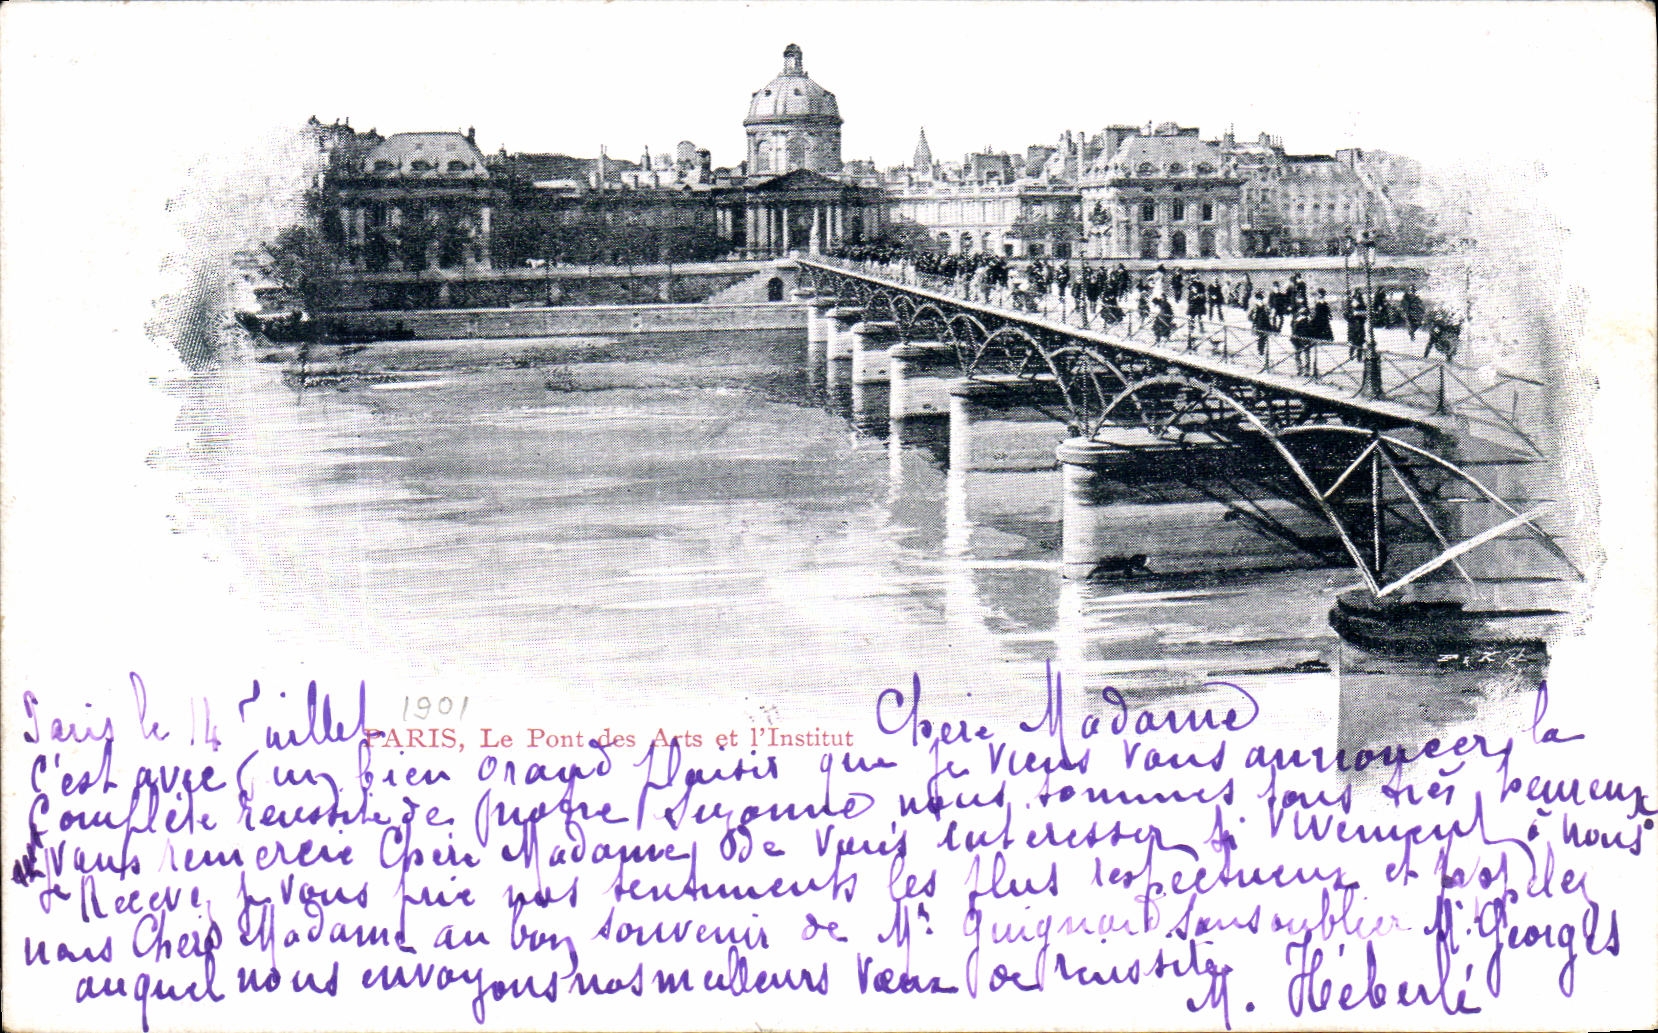 Paris le 14 Juillet 1901
PARIS, Le Pont des Arts et l'Institut
Chere Madame
C'est avec un bien grand plaisir que je viens vous annoncer la
Complète reussite de notre Suzanne nous sommes tous très heureux
je vous remercie Chere Madame de vous interesser si vivement à nous
Recevez je vous prie nos sentiments les plus respectueux et rappelez
nous Chere Madame au bon souvenir de Mr. Guignard sans oublier Mr. Georges
auquel nous envoyons nos meilleurs vœux de reussite
M. Héberlé